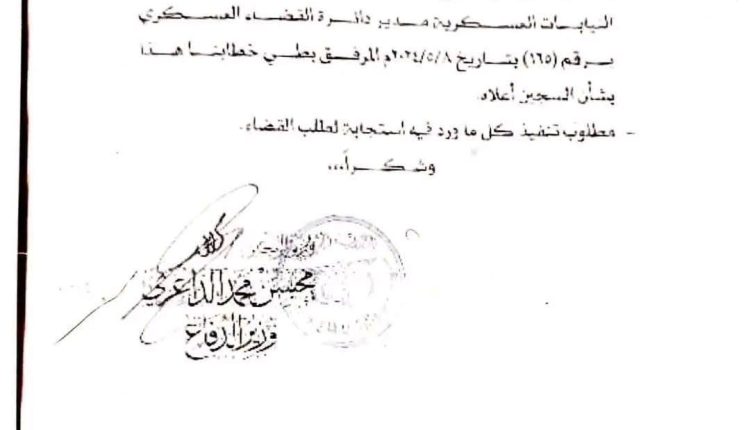 النيابات العسكرية مدير دائرة القضاء العسكري
برقم (١٦٥) بتاريخ ٢٠٢٤/٥/٨م المرفق بطي خطابنا هذا
بشأن السجين أعلاه.
- مطلوب تنفيذ كل ما ورد فيه استجابة لطلب القضاء.
وشكراً...
محسن محمد الداعري
وزير الدفاع